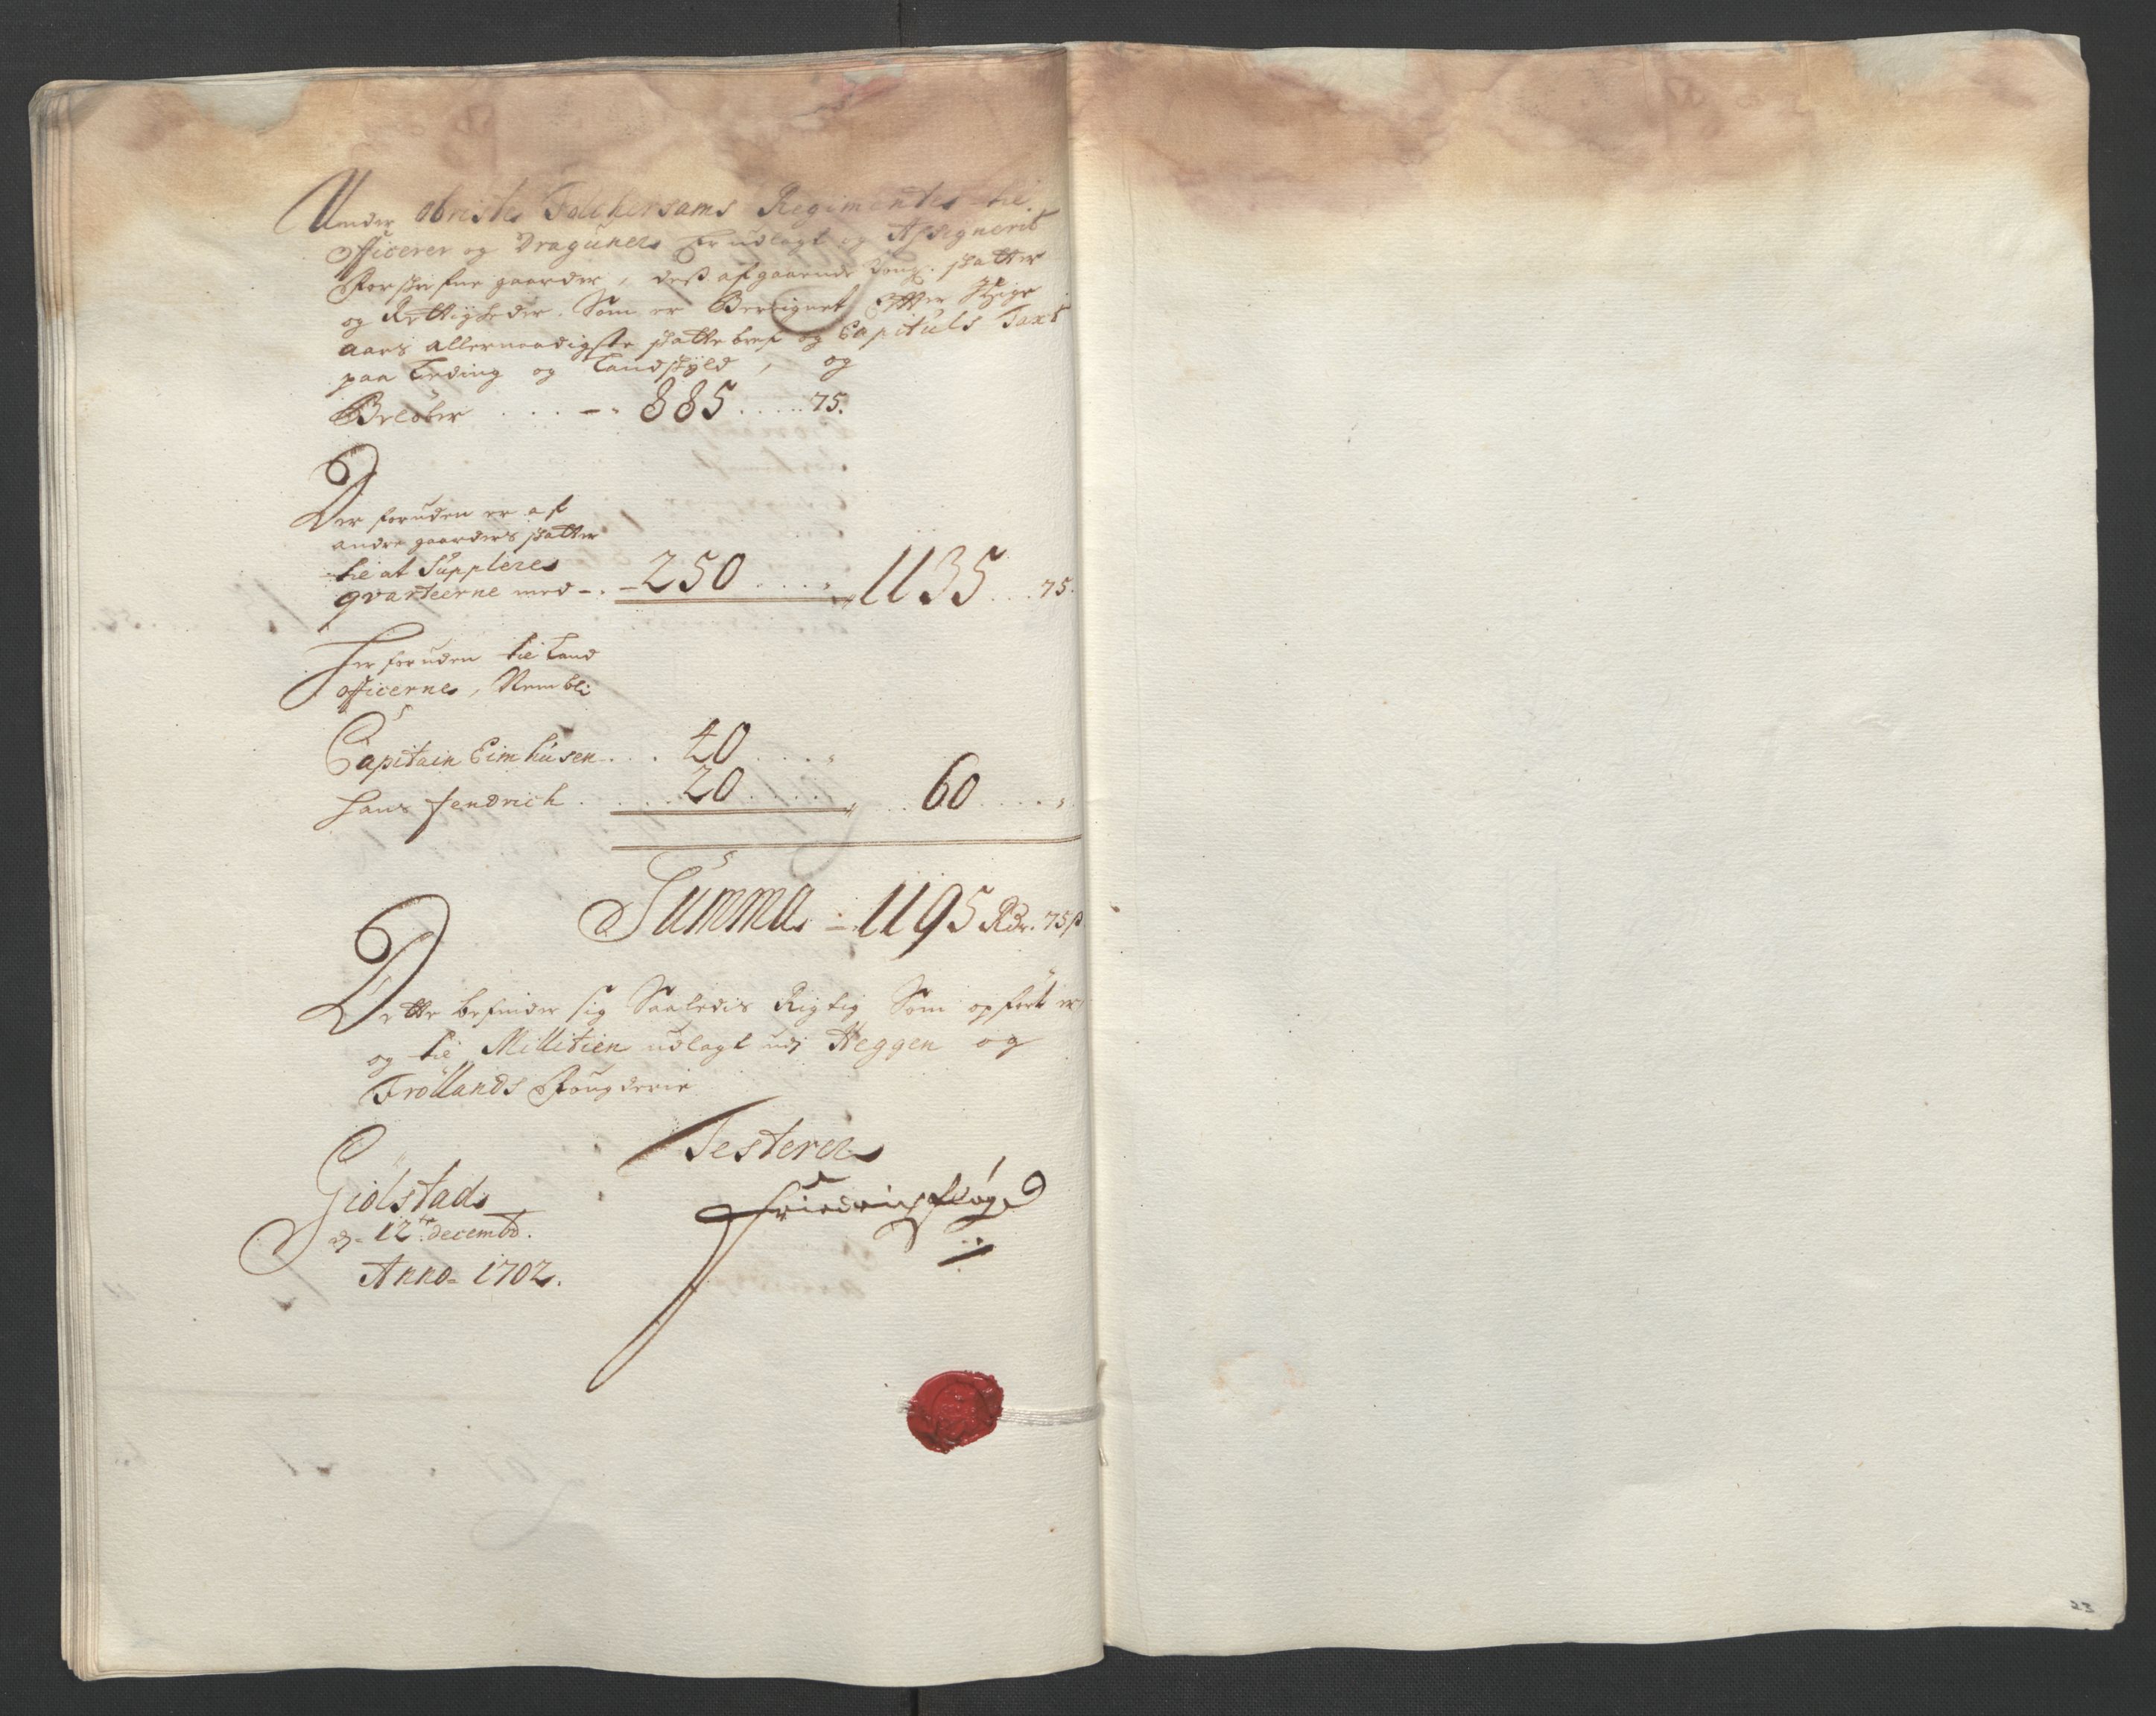 Under Obriste Folchersams Regimentes til
officerer og Dragúner Er udlagt og Assignerit
Forskrefne gaarder, deß afgaaende Kong: skatter
og Rettigheder. Som er Beregnet Efter
aars allernaadigste skattebref og Capituls Taxt
paa Leding og Landskyld, og
Beløber . . . - . 885 . . . . . 75.
Der foruden er af
andre gaarders skatter
til at Suppleres
qvarteerne med - . - 250 . . . . 1135 . . . 75.
Her foruden til Land
officerne, Nembl:
Capitain Eimhúsen . . . 40 . . . .
Hans fendrich . . . . . 20 . . . . . . . 60 . . . .
Summa = 1195 Rdr. 75 ß
Dette befinder sig Saaledis Rigtig Som opført er,
og til Millitien udlagt udj Heggen og
Frøllands Fougderie
Testerer
Giølstad
d. 12te decembr.
Anno= 1702.
Friedrich
23